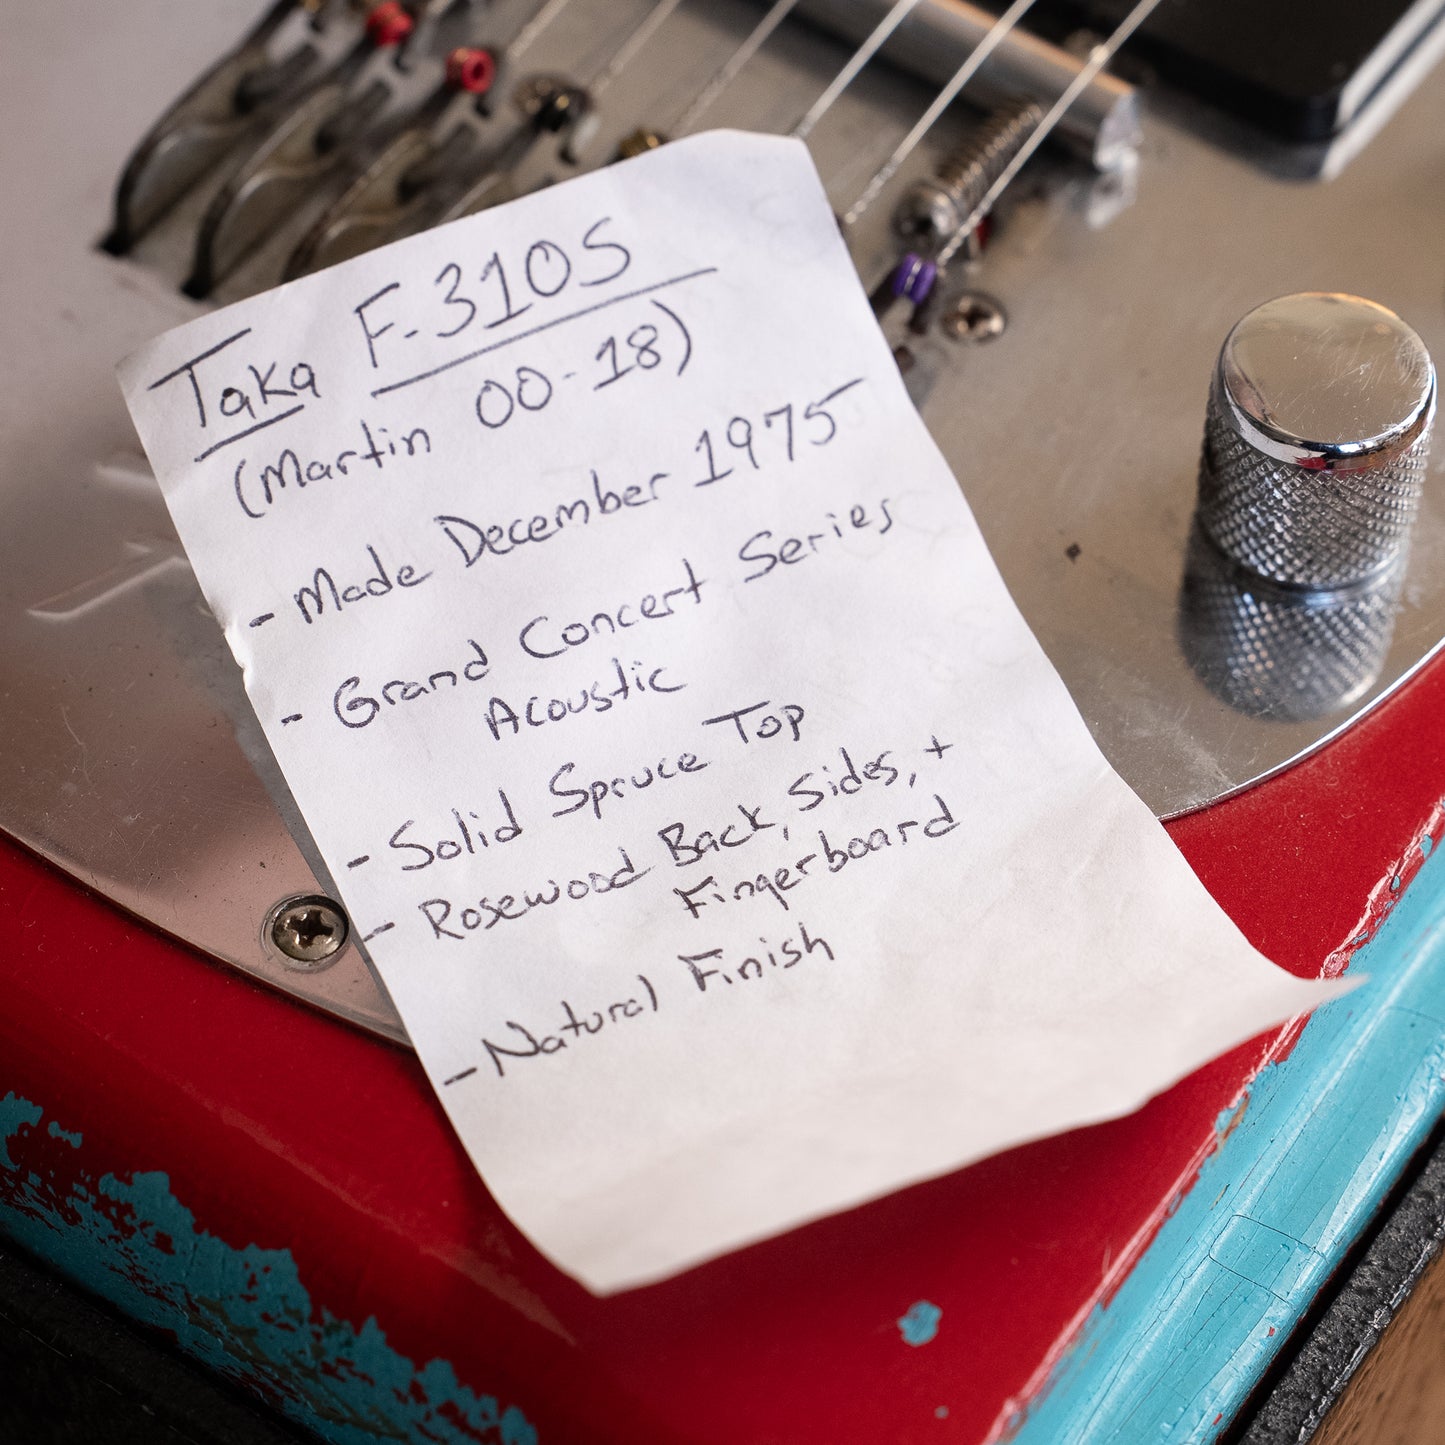 Taka F-310S
(Martin 00-18)
- Made December 1975
- Grand Concert Series
Acoustic
- Solid Spruce Top
- Rosewood Back, Sides, +
Fingerboard
- Natural Finish